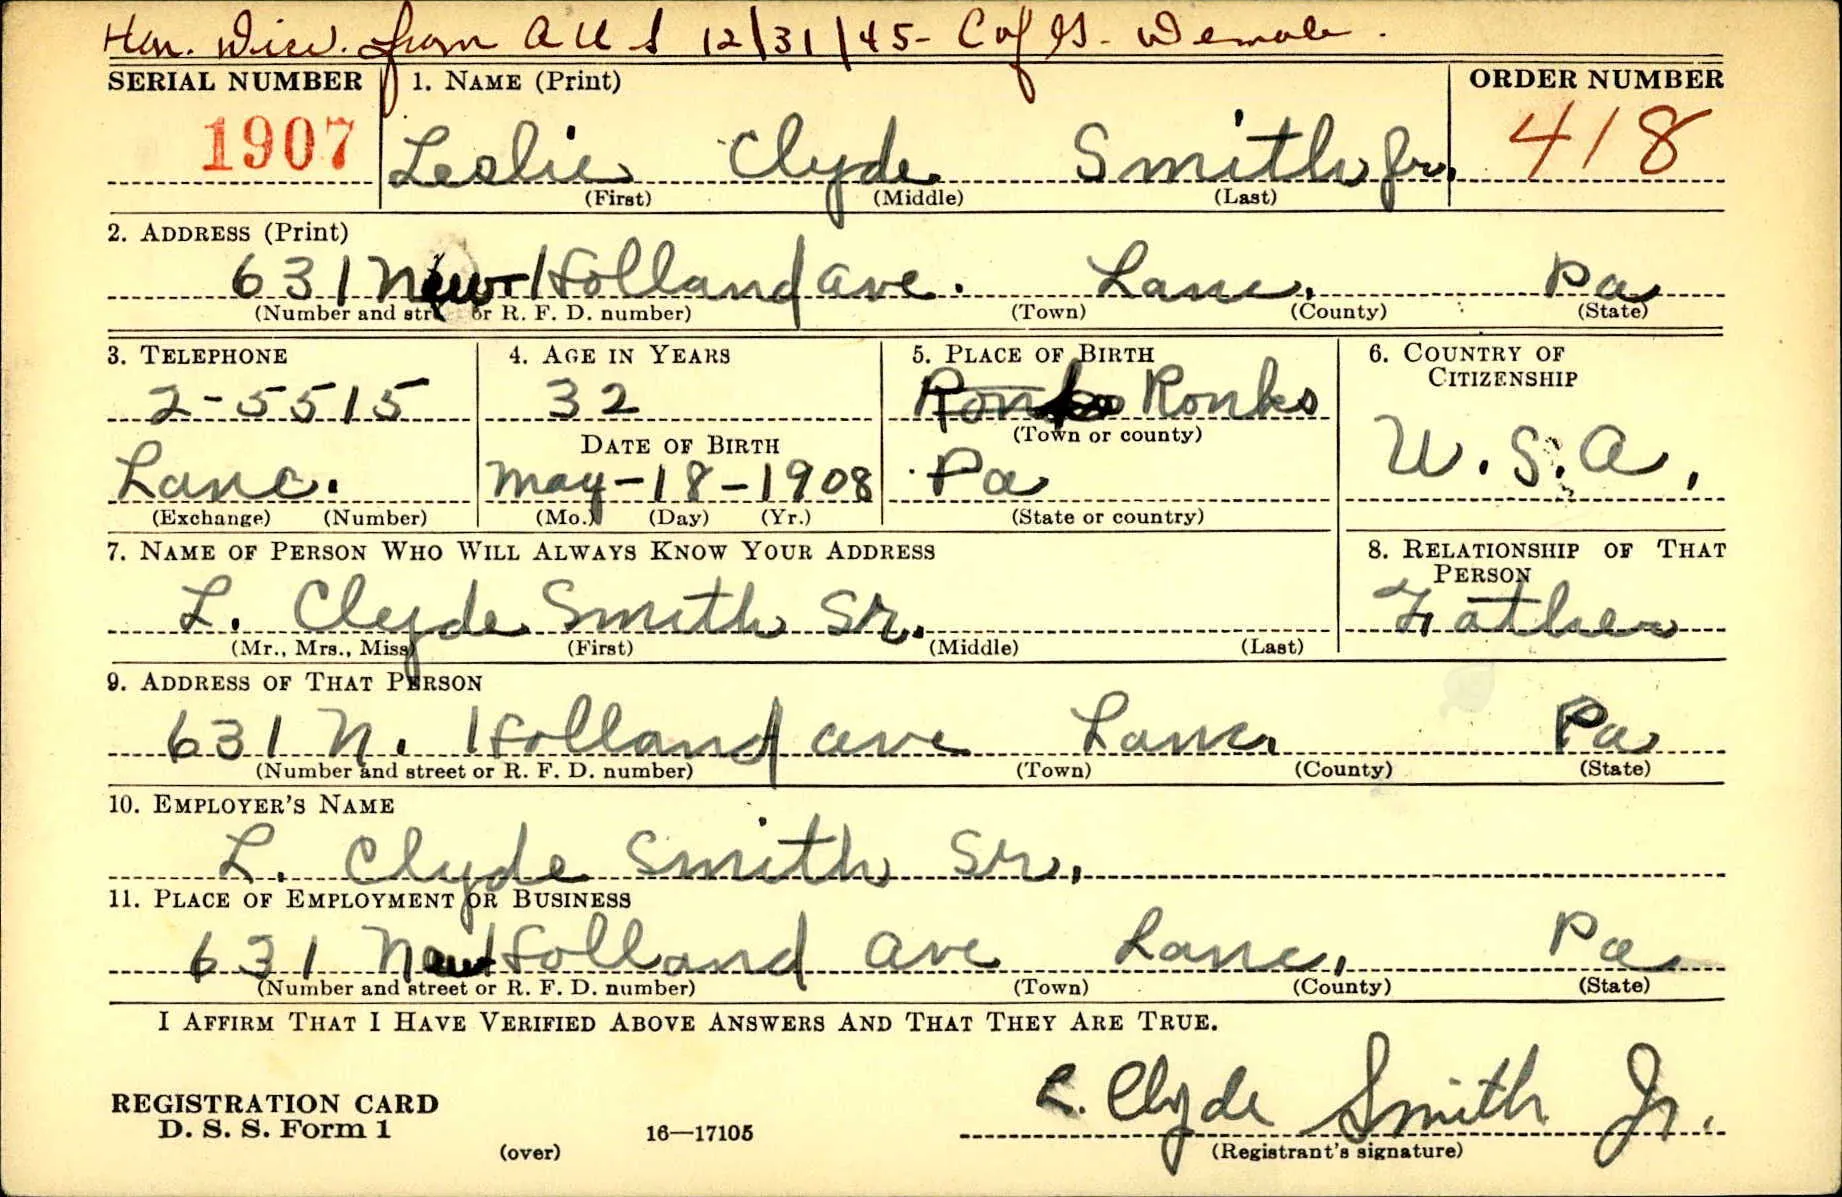 Hon. Disc. from A U S 12/31/45- C of G- Demob.
SERIAL NUMBER 1. NAME (Print) ORDER NUMBER
1907 Leslie Clyde Smith Jr. 418
(First) (Middle) (Last)
2. ADDRESS (Print)
631 New Holland ave. Lanc. Pa
(Number and street or R. F. D. number) (Town) (County) (State)
3. TELEPHONE 4. AGE IN YEARS 5. PLACE OF BIRTH 6. COUNTRY OF
CITIZENSHIP
2-5515 32 Ronks Ronks
DATE OF BIRTH (Town or county)
U.S.A.
Lanc. May-18-1908 Pa
(Exchange) (Number) (Mo.) (Day) (Yr.) (State or country)
7. NAME OF PERSON WHO WILL ALWAYS KNOW YOUR ADDRESS 8. RELATIONSHIP OF THAT
PERSON
L. Clyde Smith Sr. Father
(Mr., Mrs., Miss) (First) (Middle) (Last)
9. ADDRESS OF THAT PERSON
631 N. Holland ave Lanc. Pa
(Number and street or R. F. D. number) (Town) (County) (State)
10. EMPLOYER'S NAME
L. Clyde Smith Sr.
11. PLACE OF EMPLOYMENT OR BUSINESS
631 New Holland ave Lanc. Pa
(Number and street or R. F. D. number) (Town) (County) (State)
I AFFIRM THAT I HAVE VERIFIED ABOVE ANSWERS AND THAT THEY ARE TRUE.
L. Clyde Smith Jr.
REGISTRATION CARD
D. S. S. Form 1 16—17105
(over) (Registrant's signature)